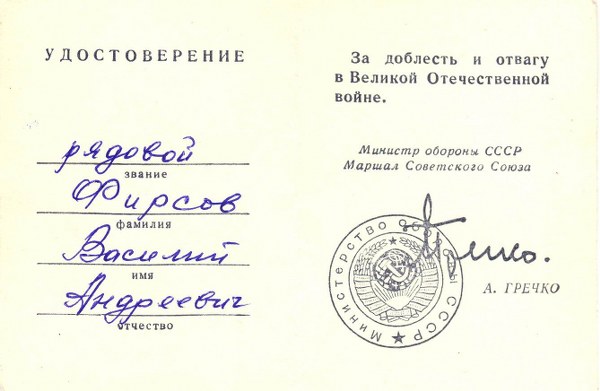 УДОСТОВЕРЕНИЕ
рядовой
звание
Фирсов
фамилия
Василий
имя
Андреевич
отчество
За доблесть и отвагу
в Великой Отечественной
войне.
Министр обороны СССР
Маршал Советского Союза
Гречко.
А. ГРЕЧКО
Министерство Обороны СССР